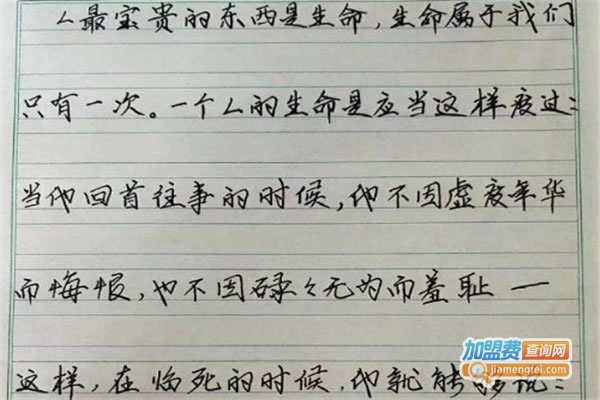 人最宝贵的东西是生命,生命属于我们
只有一次。一个人的生命是应当这样度过:
当他回首往事的时候,他不因虚度年华
而悔恨,也不因碌々无为而羞耻 —
这样,在临死的时候,他就能够说:
加盟费查询网
jiamengfei.com